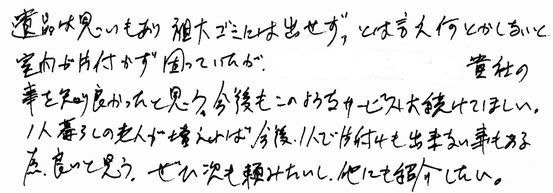 遺品は思いもあり粗大ゴミには出せず、とは言え何とかしないと
室内が片付かず困っていたが、 貴社の
事を知り良かったと思う。今後もこのようなサービスは続けてほしい。
1人暮らしの老人が増えれば今後、1人で片付けも出来ない事もある
点、良いと思う。ぜひ次も頼みたいし、他にも紹介したい。